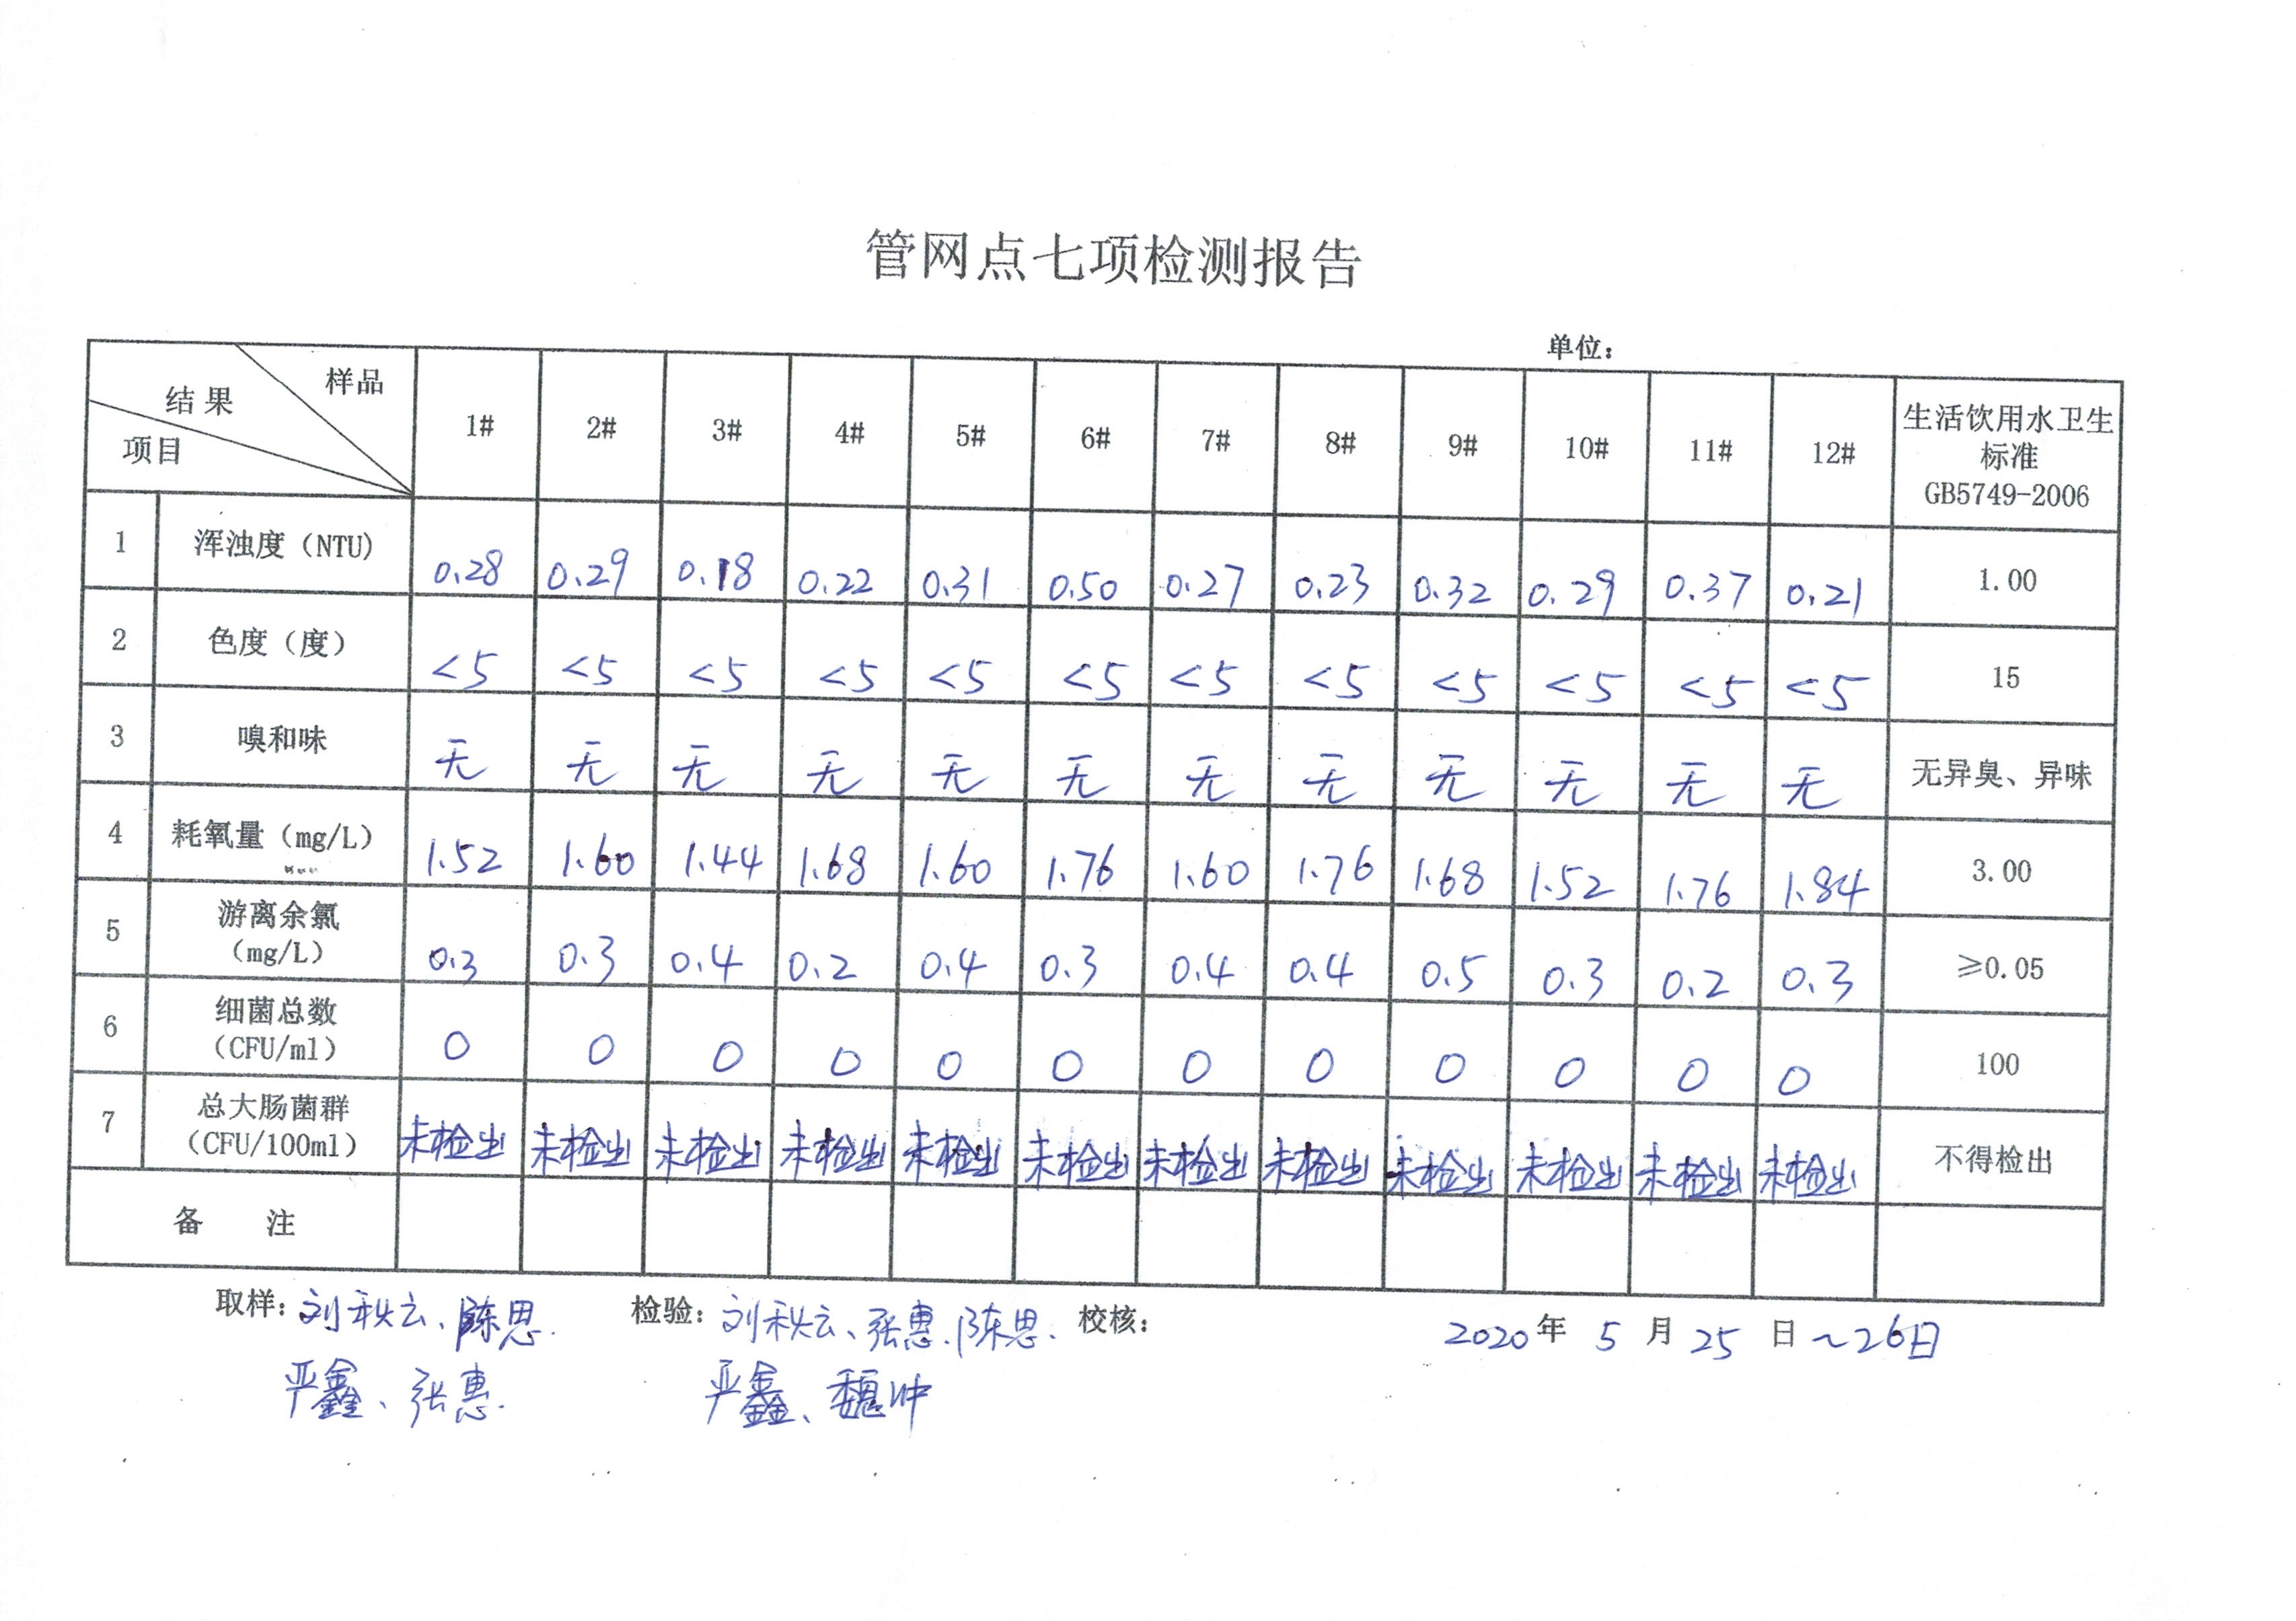 管网点七项检测报告
单位:
样品
结果
项目
1# 2# 3# 4# 5# 6# 7# 8# 9# 10# 11# 12# 生活饮用水卫生
标准
GB5749-2006
1 浑浊度(NTU) 0.28 0.29 0.18 0.22 0.31 0.50 0.27 0.23 0.32 0.29 0.37 0.21 1.00
2 色度(度) <5 <5 <5 <5 <5 <5 <5 <5 <5 <5 <5 <5 15
3 嗅和味 无 无 无 无 无 无 无 无 无 无 无 无 无异臭、异味
4 耗氧量(mg/L) 1.52 1.60 1.44 1.68 1.60 1.76 1.60 1.76 1.68 1.52 1.76 1.84 3.00
5 游离余氯
(mg/L) 0.3 0.3 0.4 0.2 0.4 0.3 0.4 0.4 0.5 0.3 0.2 0.3 ≥0.05
6 细菌总数
(CFU/ml) 0 0 0 0 0 0 0 0 0 0 0 0 100
7 总大肠菌群
(CFU/100ml) 未检出 未检出 未检出 未检出 未检出 未检出 未检出 未检出 未检出 未检出 未检出 未检出 不得检出
备 注
取样: 刘秋云、陈思. 检验: 刘秋云、张惠.陈思. 校核: 2020年 5 月 25 日 ~26日
严鑫、张惠. 严鑫、魏冲